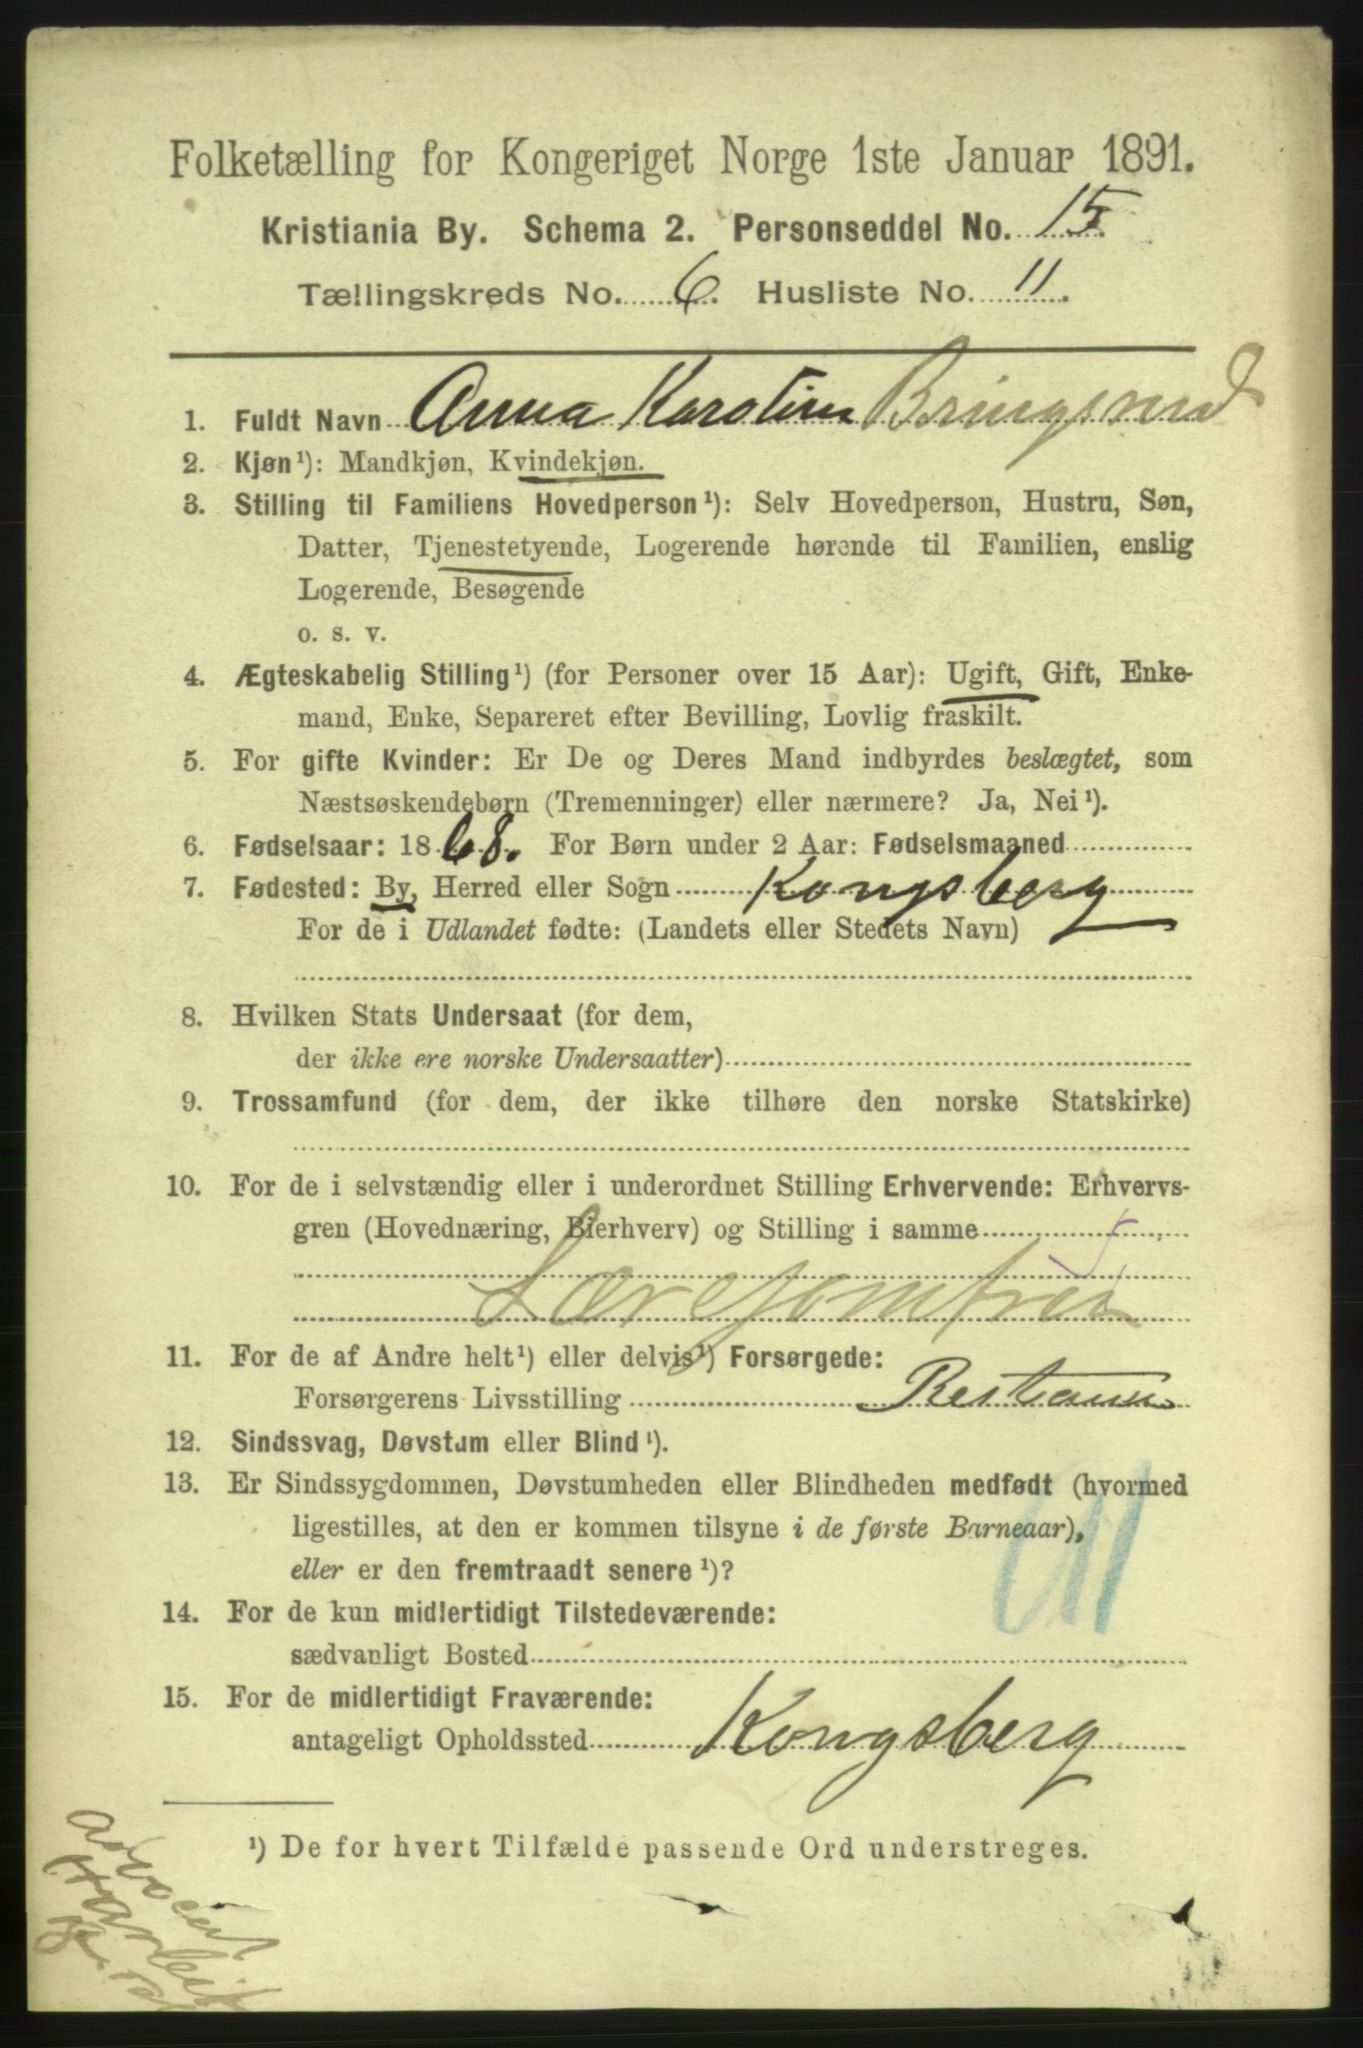 Folketælling for Kongeriget Norge 1ste Januar 1891.
Kristiania By. Schema 2. Personseddel No. 15.
Tællingskreds No. 6. Husliste No. 11.
1. Fuldt Navn Anna Karoline Bringsrud
2. Kjøn¹): Mandkjøn, Kvindekjøn.
3. Stilling til Familiens Hovedperson¹): Selv Hovedperson, Hustru, Søn,
Datter, Tjenestetyende, Logerende hørende til Familien, enslig
Logerende, Besøgende
o. s. v.
4. Ægteskabelig Stilling¹) (for Personer over 15 Aar): Ugift, Gift, Enke-
mand, Enke, Separeret efter Bevilling, Lovlig fraskilt.
5. For gifte Kvinder: Er De og Deres Mand indbyrdes beslægtet, som
Næstsøskendebørn (Tremenninger) eller nærmere? Ja, Nei¹).
6. Fødselsaar: 1868. For Børn under 2 Aar: Fødselsmaaned
7. Fødested: By, Herred eller Sogn Kongsberg
For de i Udlandet fødte: (Landets eller Stedets Navn)
8. Hvilken Stats Undersaat (for dem,
der ikke ere norske Undersaatter)
9. Trossamfund (for dem, der ikke tilhøre den norske Statskirke)
10. For de i selvstændig eller i underordnet Stilling Erhvervende: Erhvervs-
gren (Hovednæring, Bierhverv) og Stilling i samme
Lærejomfru
11. For de af Andre helt¹) eller delvis¹) Forsørgede:
Forsørgerens Livsstilling
12. Sindssvag, Døvstum eller Blind¹).
13. Er Sindssygdommen, Døvstumheden eller Blindheden medfødt (hvormed
ligestilles, at den er kommen tilsyne i de første Barneaar),
eller er den fremtraadt senere¹)?
14. For de kun midlertidigt Tilstedeværende:
sædvanligt Bosted
15. For de midlertidigt Fraværende:
antageligt Opholdssted Kongsberg
¹) De for hvert Tilfælde passende Ord understreges.